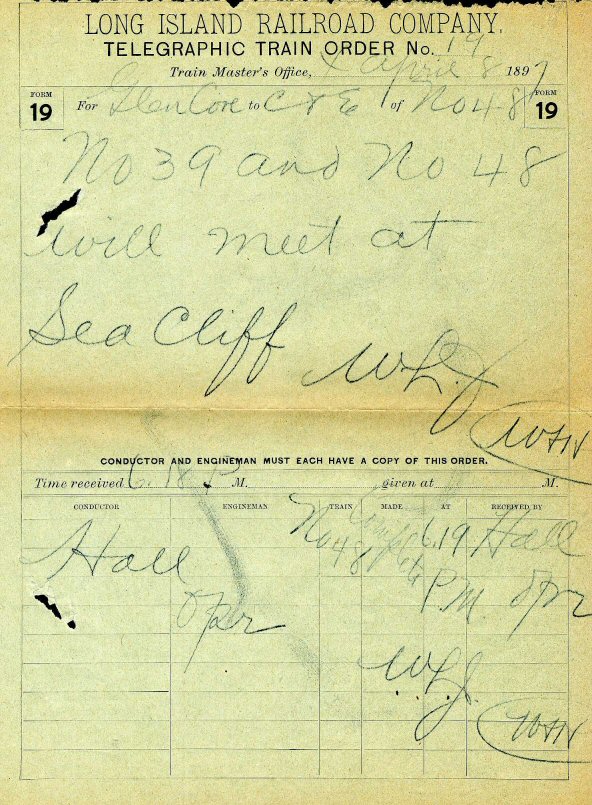 LONG ISLAND RAILROAD COMPANY.
TELEGRAPHIC TRAIN ORDER No. 19
Train Master's Office, April 8 1897
FORM 19 For Glen Cove to C & E of No 48 FORM 19
No 39 and No 48
will meet at
Sea Cliff
W.L.J
WHN
CONDUCTOR AND ENGINEMAN MUST EACH HAVE A COPY OF THIS ORDER.
Time received 6.18 P M. given at M.
CONDUCTOR ENGINEMAN TRAIN MADE AT RECEIVED BY
Hall Oper No 48 6.19 P.M. Hall Opr
W.L.J.
WHN